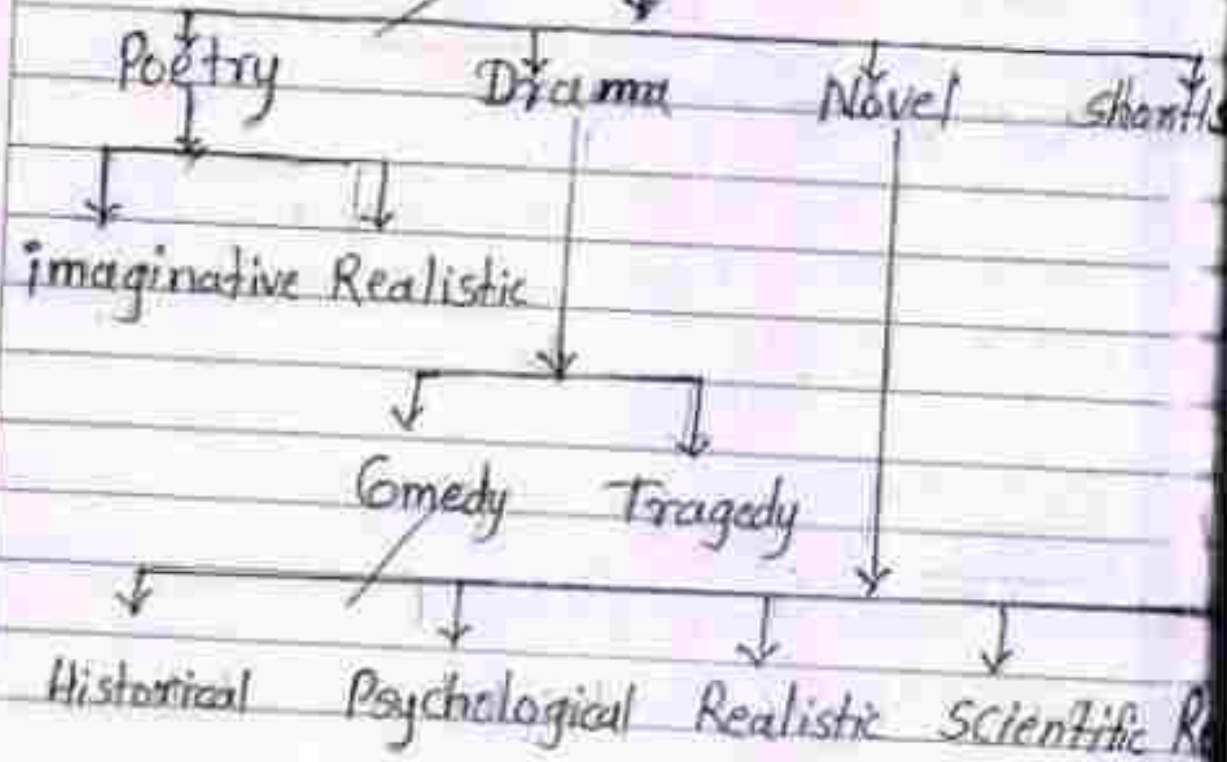 Poetry Drama Novel
imaginative Realistic
Comedy Tragedy
Historical Psychological Realistic Scientific